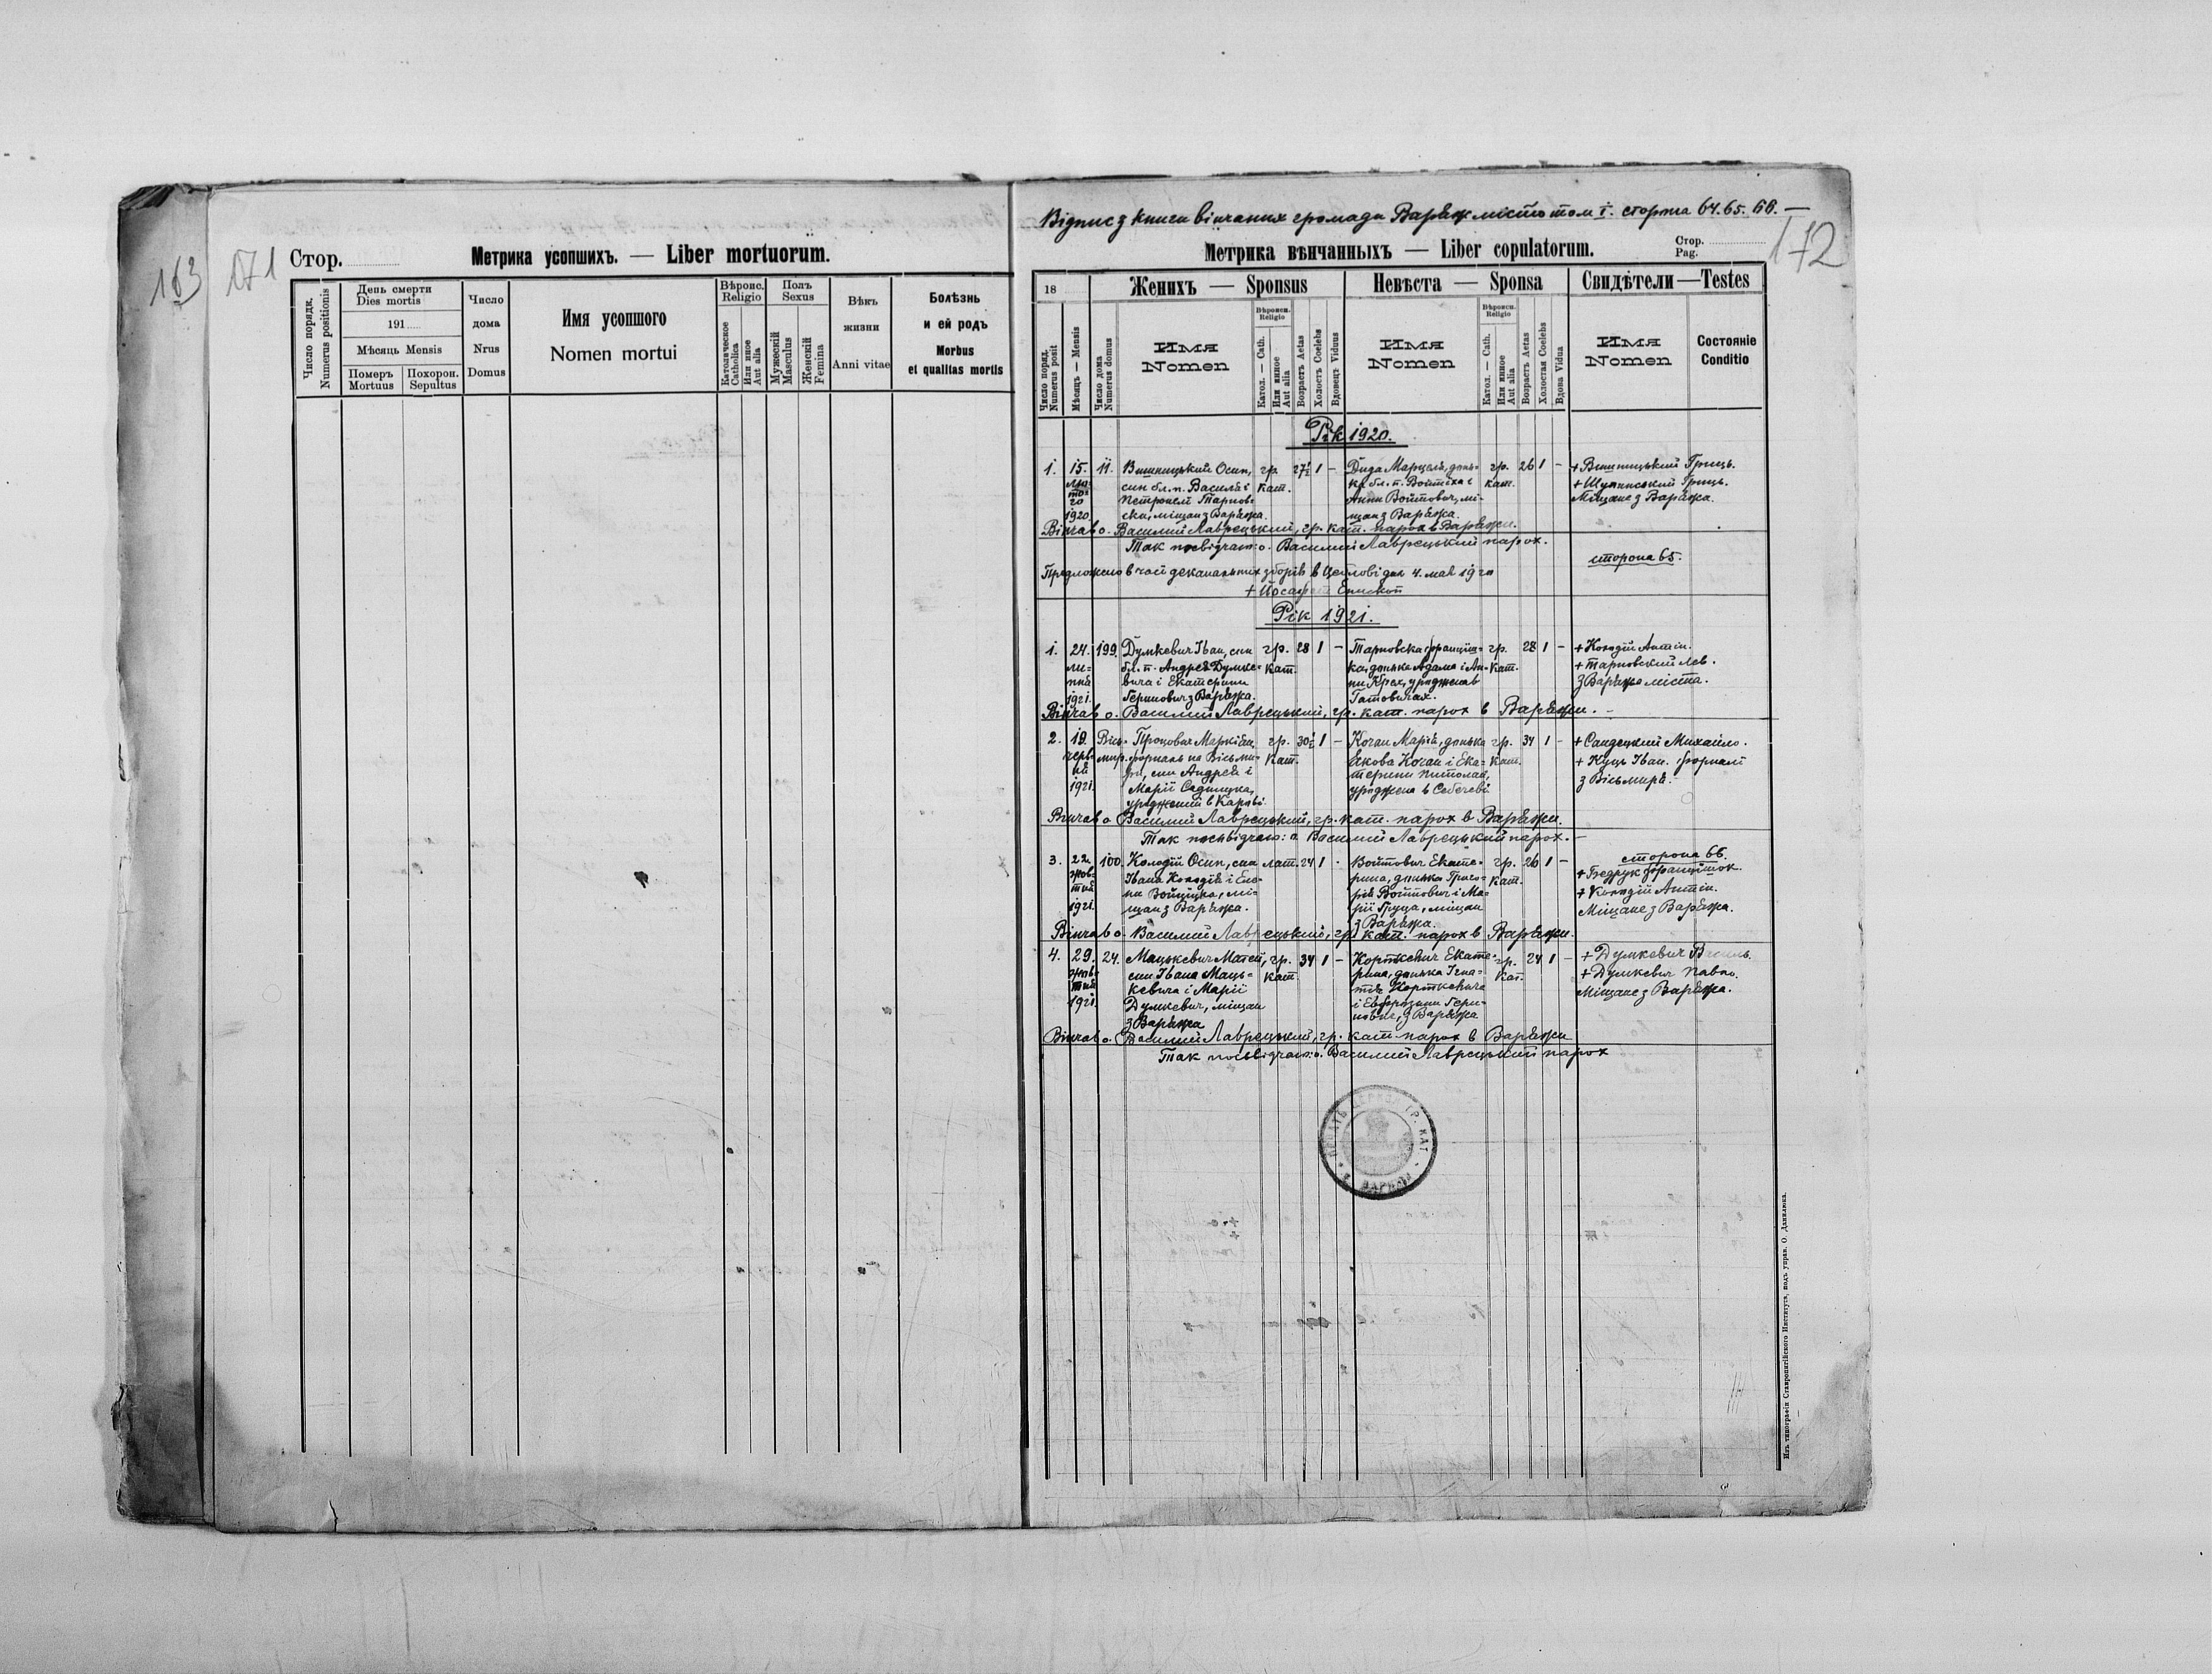 163
171
Стор.
Метрика усопшихъ. — Liber mortuorum.
Число порядк.
Numerus positionis
День смерти
Dies mortis
191
Мѣсяць Mensis
Померъ
Mortuus
Похорон.
Sepultus
Число
дома
Nrus
Domus
Имя усопшого
Nomen mortui
Вѣроис.
Religio
Католическое
Catholica
Или иное
Aut alia
Полъ
Sexus
Мужескій
Masculus
Женскій
Femina
Вѣкъ
жизни
Anni vitae
Болѣзнь
и ей родъ
Morbus
et qualitas mortis
Відпис з книги вінчаних громади Варяж місто том I. сторона 64. 65. 66. —
172
Метрика вѣнчанныхъ — Liber copulatorum.
Стор.
Pag.
18
Женихъ — Sponsus
Невѣста — Sponsa
Свидѣтели — Testes
Число поряд.
Numerus posit
Мѣсяць — Mensis
Число дома
Numerus domus
Имя
Nomen
Вѣроисп.
Religio
Катол. — Cath.
Или иное
Aut alia
Возрастъ Aetas
Холостъ Coelebs
Вдовець Viduus
Имя
Nomen
Вѣроисп.
Religio
Катол. — Cath.
Или иное
Aut alia
Возрастъ Aetas
Холостая Coelebs
Вдова Vidua
Имя
Nomen
Состояніе
Conditio
Рік 1920.
1. 15. лютого 1920 11.
Вишницький Осип,
син бл. п. Василя і
Петронелї Тарнов-
ски, міщан з Варяжа.
гр. кат. 27½ 1 —
Дида Марцеля, донь-
ка бл. п. Войтїха і
Анни Войтович, мі-
щан з Варяжа.
гр. кат. 26 1 —
+ Вишницький Гриць.
+ Шуминський Гриць.
Міщане з Варяжа.
Вінчав о. Василий Лаврецький, гр. кат. парох в Варяжи.
Так посвідчаю: о. Василий Лаврецький парох.
сторона 65.
Предложено в часї деканальних зборів в Цеблові дня 4. мая 1920
+ Йосафат Епископ
Рік 1921.
1. 24. липня 1921. 199.
Думкевич Іван, син
бл. п. Андрея Думке-
вича і Екатерини
Геринович з Варяжа.
гр. кат. 28 1 —
Тарновска Францїш-
ка, донька Адама і Ан-
ни Крех, уроджена в
Гатовичах.
гр. кат. 28 1 —
+ Колодїй Антін.
+ Тарновский Лев.
З Варяжа міста.
Вінчав о. Василий Лаврецький, гр. кат. парох в Варяжи. —
2. 19. червня 1921.
Процович Маркіян,
форналь на Вісьми-
рі, син Андрея і
Марії Садницка,
уроджений в Карові.
гр. кат. 30½ 1 —
Кочан Марія, донька
Якова Кочан і Ека-
терини Питолай,
уроджена в Себечеві
гр. кат. 34 1 —
+ Сандецкий Михайло.
+ Куць Іван. форналї
з Вісьмира.
Вінчав о. Василий Лаврецький, гр. кат. парох в Варяжи.
Так посвідчаю: о. Василий Лаврецький парох. —
сторона 66.
3. 22. жовтня 1921. 100.
Колодїй Осип, син
Івана Колодїя і Еле-
ни Войціцка, мі-
щан з Варяжа.
лат. 24 1
Войтович Екате-
рина, донька Григо-
рія Войтович і Ма-
рії Груца, міщан
з Варяжа.
гр. кат. 26 1 —
+ Бедрук Францїшок.
+ Колодїй Антін.
Міщане з Варяжа.
Вінчав о. Василий Лаврецький, гр. кат. парох в Варяжи.
4. 29. жовтня 1921. 24.
Мацькевич Матей,
син Івана Маць-
кевича і Марії
Думкевич, міщан
з Варяжа
гр. кат. 34 1 —
Корткевич Екате-
рина, донька Ігна-
тія Корткевича
і Евфрозини Гери-
нович, з Варяжа
гр. кат. 24 1 —
+ Думкевич Василь.
+ Думкевич Павло.
Міщане з Варяжа.
Вінчав о. Василий Лаврецький, гр. кат. парох в Варяжи
Так посвідчаю: о. Василий Лаврецький парох
Изъ типографіи Ставропигійского Института, подъ управ. О. Данилюка.